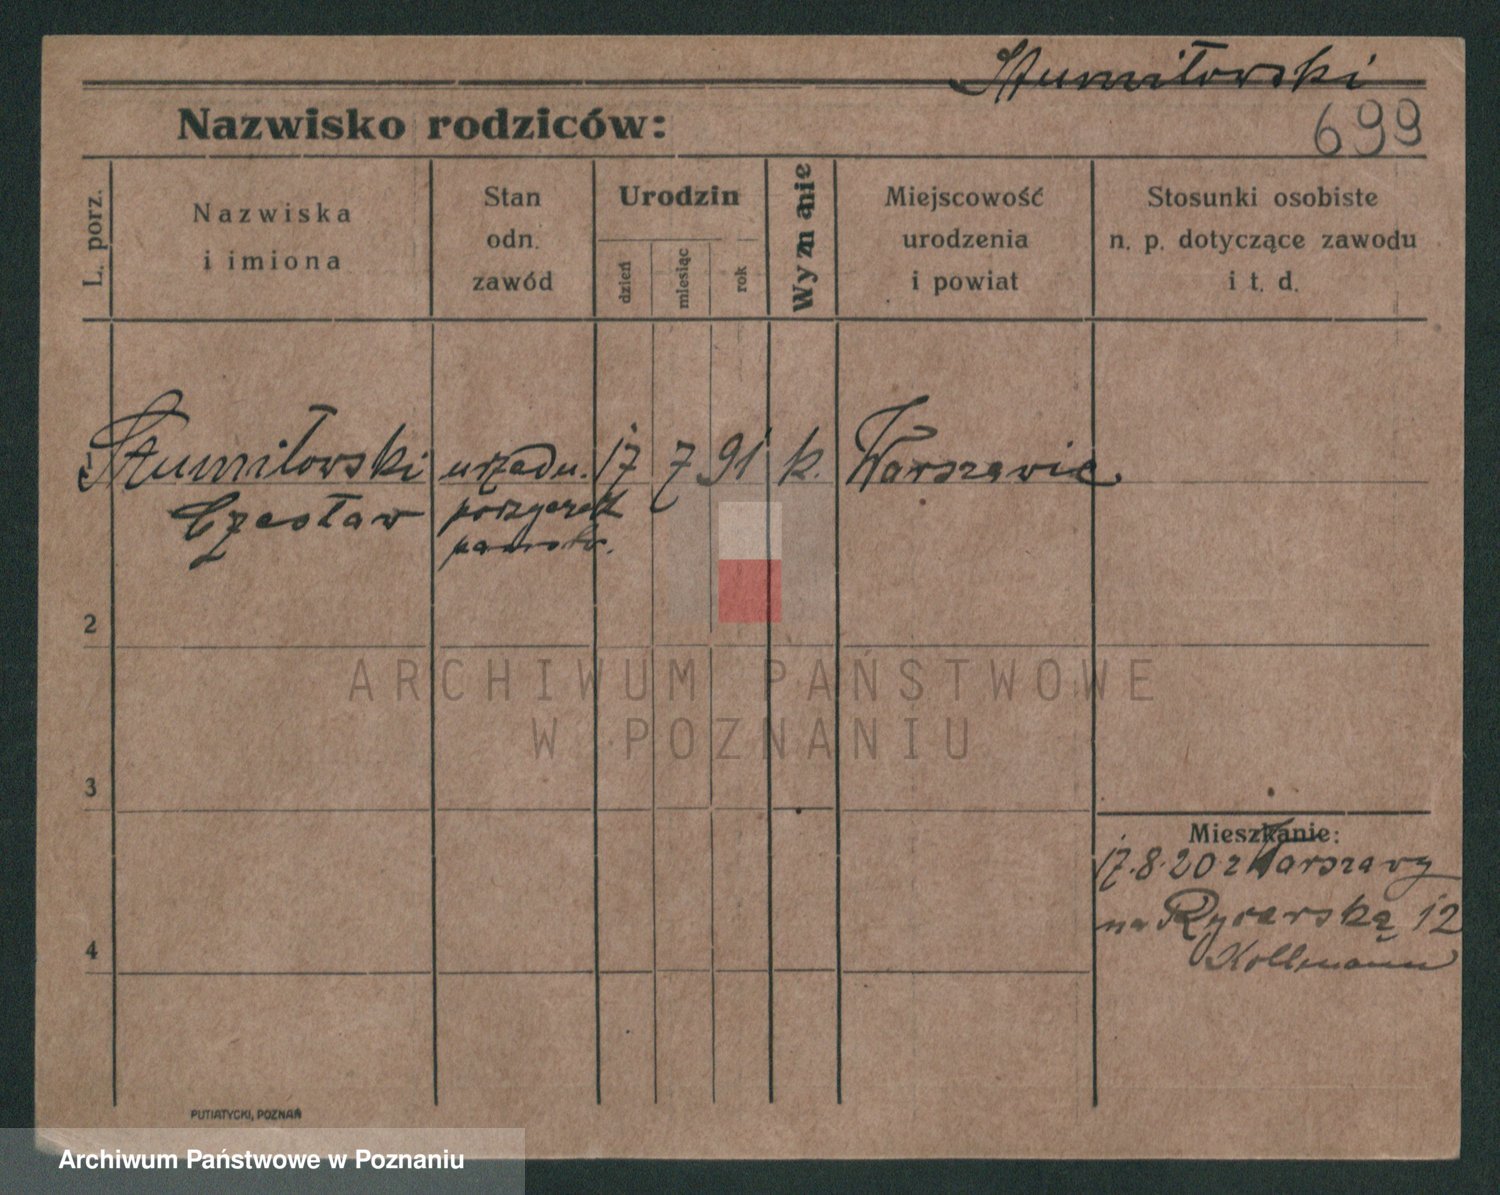 Stumiłowski
Nazwisko rodziców:
699
L. porz.
Nazwiska
i imiona
Stan
odn.
zawód
Urodzin
dzień
miesiąc
rok
Wyznanie
Miejscowość
urodzenia
i powiat
Stosunki osobiste
n. p. dotyczące zawodu
i t. d.
Stumiłowski urzędn. 17 7 91 k. Warszawie
Czesław
2
3
4
Mieszkanie:
17.8.20 z Warszawy
na Rycerską 12
Kollmann
ARCHIWUM PAŃSTWOWE
W POZNANIU
PUTIATYCKI, POZNAŃ
Archiwum Państwowe w Poznaniu